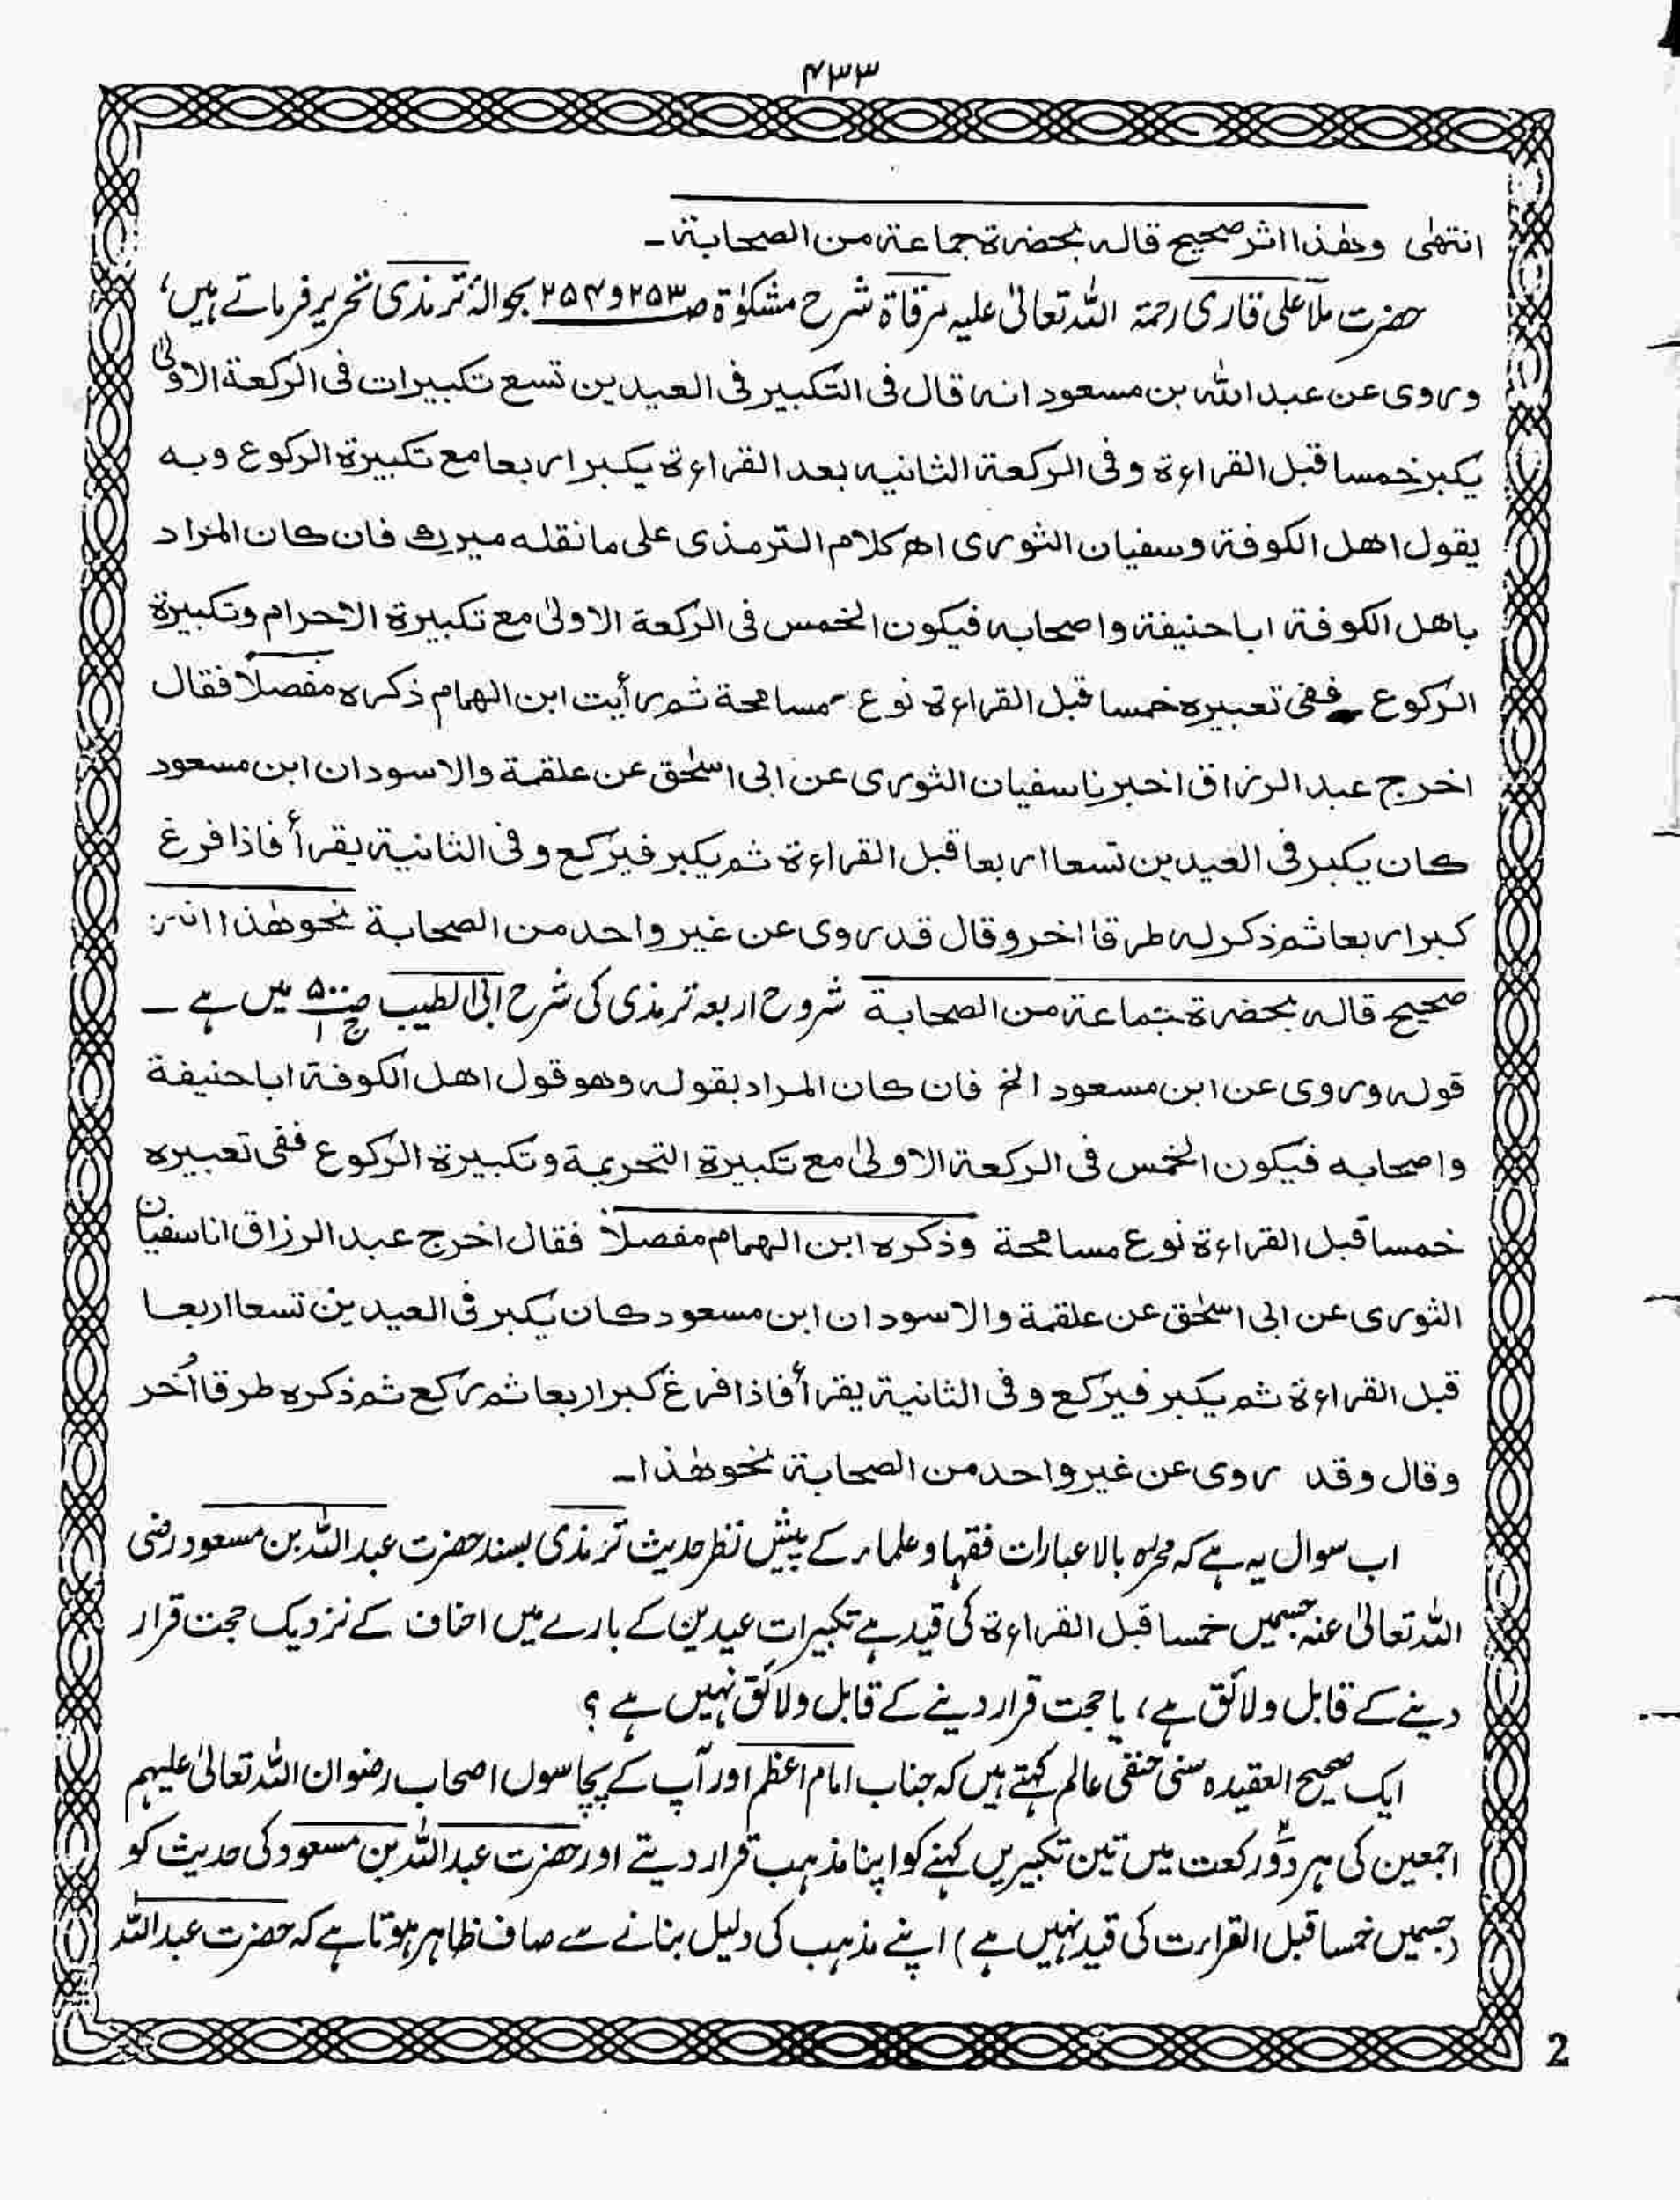 ۴۳۳
انتھٰی وھٰذا اثر صحیح قالہ بحضرۃ جماعۃ من الصحابۃ ـ
حضرت ملّا علی قاری رحمۃ اللہ تعالیٰ علیہ مرقاۃ شرح مشکوٰۃ صـ ۲۵۳ و ۲۵۴ بحوالۂ ترمذی تحریر فرماتے ہیں،
وروی عن عبد اللہ بن مسعود انہ قال فی التکبیر فی العیدین تسع تکبیرات فی الرکعۃ الاولیٰ
یکبر خمسا قبل القراءۃ وفی الرکعۃ الثانیہ بعد القراءۃ یکبر اربعا مع تکبیرۃ الرکوع وبہ
یقول اھل الکوفۃ وسفیان الثوری اھ کلام الترمذی علی ما نقلہ میرک فان کان المراد
باھل الکوفۃ ابا حنیفۃ واصحابہ فیکون الخمس فی الرکعۃ الاولیٰ مع تکبیرۃ الاحرام وتکبیرۃ
الرکوع ـ ففی تعبیرہ خمسا قبل القراءۃ نوع مسامحۃ ثم رأیت ابن الھمام ذکرہ مفصلًا فقال
اخرج عبد الرزاق اخبرنا سفیان الثوری عن ابی اسحٰق عن علقمۃ والاسود ان ابن مسعود
کان یکبر فی العیدین تسعا اربعا قبل القراءۃ ثم یکبر فیرکع وفی الثانیۃ یقرأ فاذا فرغ
کبر اربعا ثم ذکر لہ طرقا اخر وقال قد روی عن غیر واحد من الصحابۃ نحو ھٰذا اثر
صحیح قالہ بحضرۃ جماعۃ من الصحابۃ شروح اربعہ ترمذی کی شرح ابی الطیب صـ۵۰۰ ج۱ میں ہے ـ
قولہ وروی عن ابن مسعود الخ فان کان المراد بقولہ وھو قول اھل الکوفۃ ابا حنیفۃ
واصحابہ فیکون الخمس فی الرکعۃ الاولیٰ مع تکبیرۃ التحریمۃ وتکبیرۃ الرکوع ففی تعبیرہ
خمسا قبل القراءۃ نوع مسامحۃ وذکرہ ابن الھمام مفصلًا فقال اخرج عبد الرزاق انا سفیان
الثوری عن ابی اسحٰق عن علقمۃ والاسود ان ابن مسعود کان یکبر فی العیدین تسعا اربعا
قبل القراءۃ ثم یکبر فیرکع وفی الثانیۃ یقرأ فاذا فرغ کبر اربعا ثم رکع ثم ذکرہ طرقا اُخر
وقال وقد روی عن غیر واحد من الصحابۃ نحو ھٰذا ـ
اب سوال یہ ہے کہ محررہ بالا عبارات فقہا و علماء کے پیش نظر حدیث ترمذی بسند حضرت عبد اللہ بن مسعود رضی
اللہ تعالیٰ عنہ جسمیں خمسا قبل القراءۃ کی قید ہے تکبیرات عیدین کے بارے میں احناف کے نزدیک حجت قرار
دینے کے قابل و لائق ہے، یا حجت قرار دینے کے قابل و لائق نہیں ہے ؟
ایک صحیح العقیدہ سنی حنفی عالم کہتے ہیں کہ جناب امام اعظم اور آپ کے پچاسوں اصحاب رضوان اللہ تعالیٰ علیہم
اجمعین کی ہر دو۲ رکعت میں تین تکبیریں کہنے کو اپنا مذہب قرار دیتے اور حضرت عبد اللہ بن مسعود کی حدیث کو
(جسمیں خمسا قبل القراءت کی قید نہیں ہے) اپنے مذہب کی دلیل بنانے سے صاف ظاہر ہوتا ہے کہ حضرت عبد اللہ
2